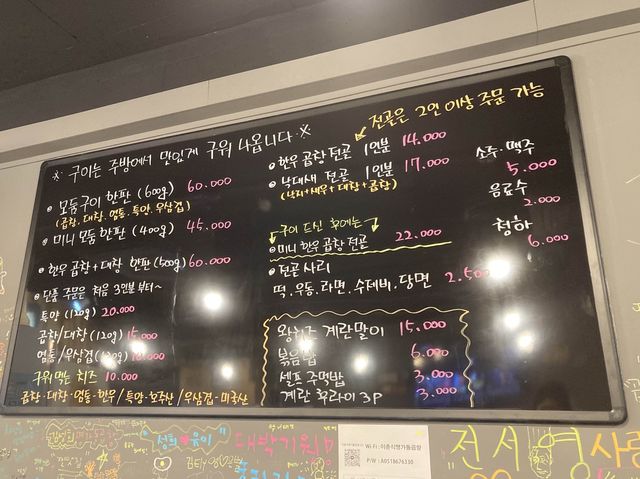 ※ 구이는 주방에서 맛있게 구워 나옵니다 ※
• 모둠구이 한판 (600g) 60.000
(곱창, 대창, 염통, 특양, 우삼겹)
• 미니 모둠 한판 (400g) 45.000
• 한우 곱창+대창 한판 (500g) 60.000
• 단품 주문은 처음 3인분 부터~
특양 (120g) 20.000
곱창/대창 (120g) 15.000
염통/우삼겹 (120g)
구워먹는 치즈 10.000
곱창·대창·염통-한우/특양-호주산/우삼겹-미국산
전골은 2인 이상 주문 가능
• 한우 곱창 전골 1인분 14.000
• 낙대새 전골 1인분 17.000
(낙지+새우+대창+곱창)
구이 드신 후에는
• 미니 한우 곱창 전골 22.000
• 전골 사리
떡, 우동, 라면, 수제비, 당면 2.500
왕치즈 계란말이 15.000
볶음밥 6.000
셀프 주먹밥 3.000
계란 후라이 3P 3.000
소주·맥주
5.000
음료수
2.000
청하
6.000
대박기원
Wi-Fi : 이춘식명가돌곱창
P/W : A0518676330